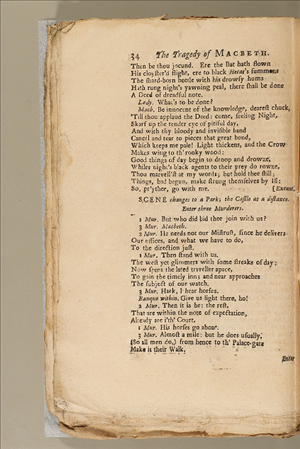 34 The Tragedy of MACBETH.
Then be thou jocund. Ere the Bat hath flown
His cloyster'd flight, ere to black Hecat's summons
The shard-born beetle with his drowsy hums
Hath rung night's yawning peal, there shall be done
A Deed of dreadful note.
Lady. What's to be done?
Macb. Be innocent of the knowledge, dearest chuck,
'Till thou applaud the Deed: come, seeling Night,
Skarf up the tender eye of pitiful day,
And with thy bloody and invisible hand
Cancel and tear to pieces that great bond,
Which keeps me pale! Light thickens, and the Crow
Makes wing to th' rooky wood:
Good things of day begin to droop and drowze,
Whiles night's black agents to their prey do rowze.
Thou marvell'st at my words; but hold thee still;
Things, bad begun, make strong themselves by ill:
So, pr'ythee, go with me. [Exeunt.
SCENE changes to a Park; the Castle at a distance.
Enter three Murderers.
1 Mur. But who did bid thee join with us?
3 Mur. Macbeth.
2 Mur. He needs not our Mistrust, since he delivers
Our offices, and what we have to do,
To the direction just.
1 Mur. Then stand with us.
The west yet glimmers with some streaks of day:
Now spurs the lated traveller apace,
To gain the timely inn; and near approaches
The subject of our watch.
3 Mur. Hark, I hear horses.
Banquo within. Give us light there, ho!
2 Mur. Then it is he: the rest,
That are within the note of expectation,
Already are i'th' Court.
1 Mur. His horses go about.
3 Mur. Almost a mile: but he does usually,
(So all men do,) from hence to th' Palace-gate
Make it their Walk.
Enter